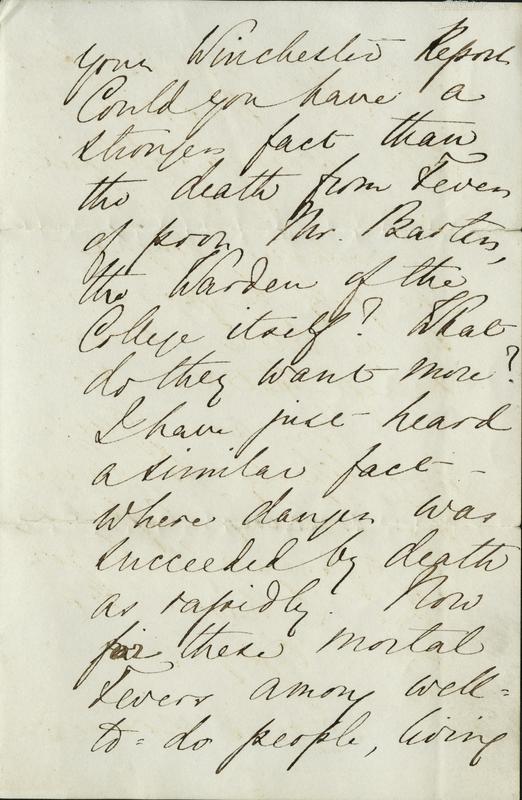 your Winchester Report
Could you have a
stronger fact than
the death from Fever
of poor Mr. Barter,
the Warden of the
College itself? What
do they want more?
I have just heard
a similar fact -
where danger was
succeeded by death
as rapidly. Now
for these mortal
Fevers among well-
to-do people, living